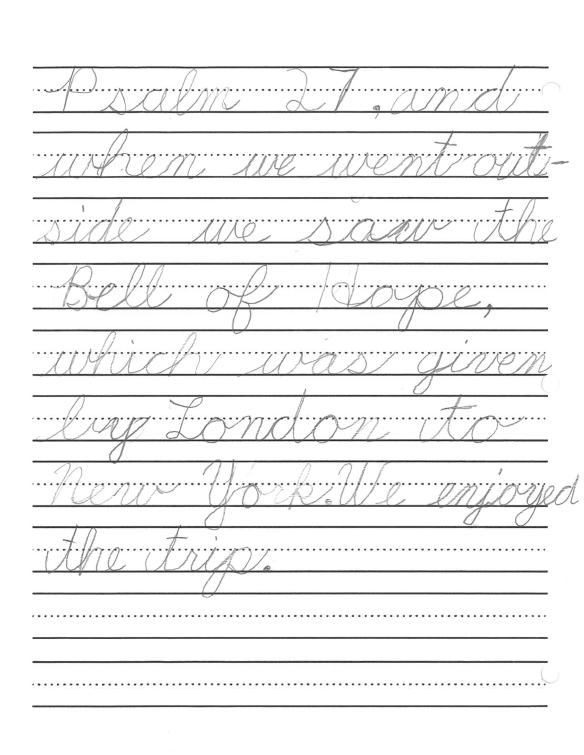 Psalm 27, and
when we went out-
side we saw the
Bell of Hope,
which was given
by London to
New York. We enjoyed
the trip.